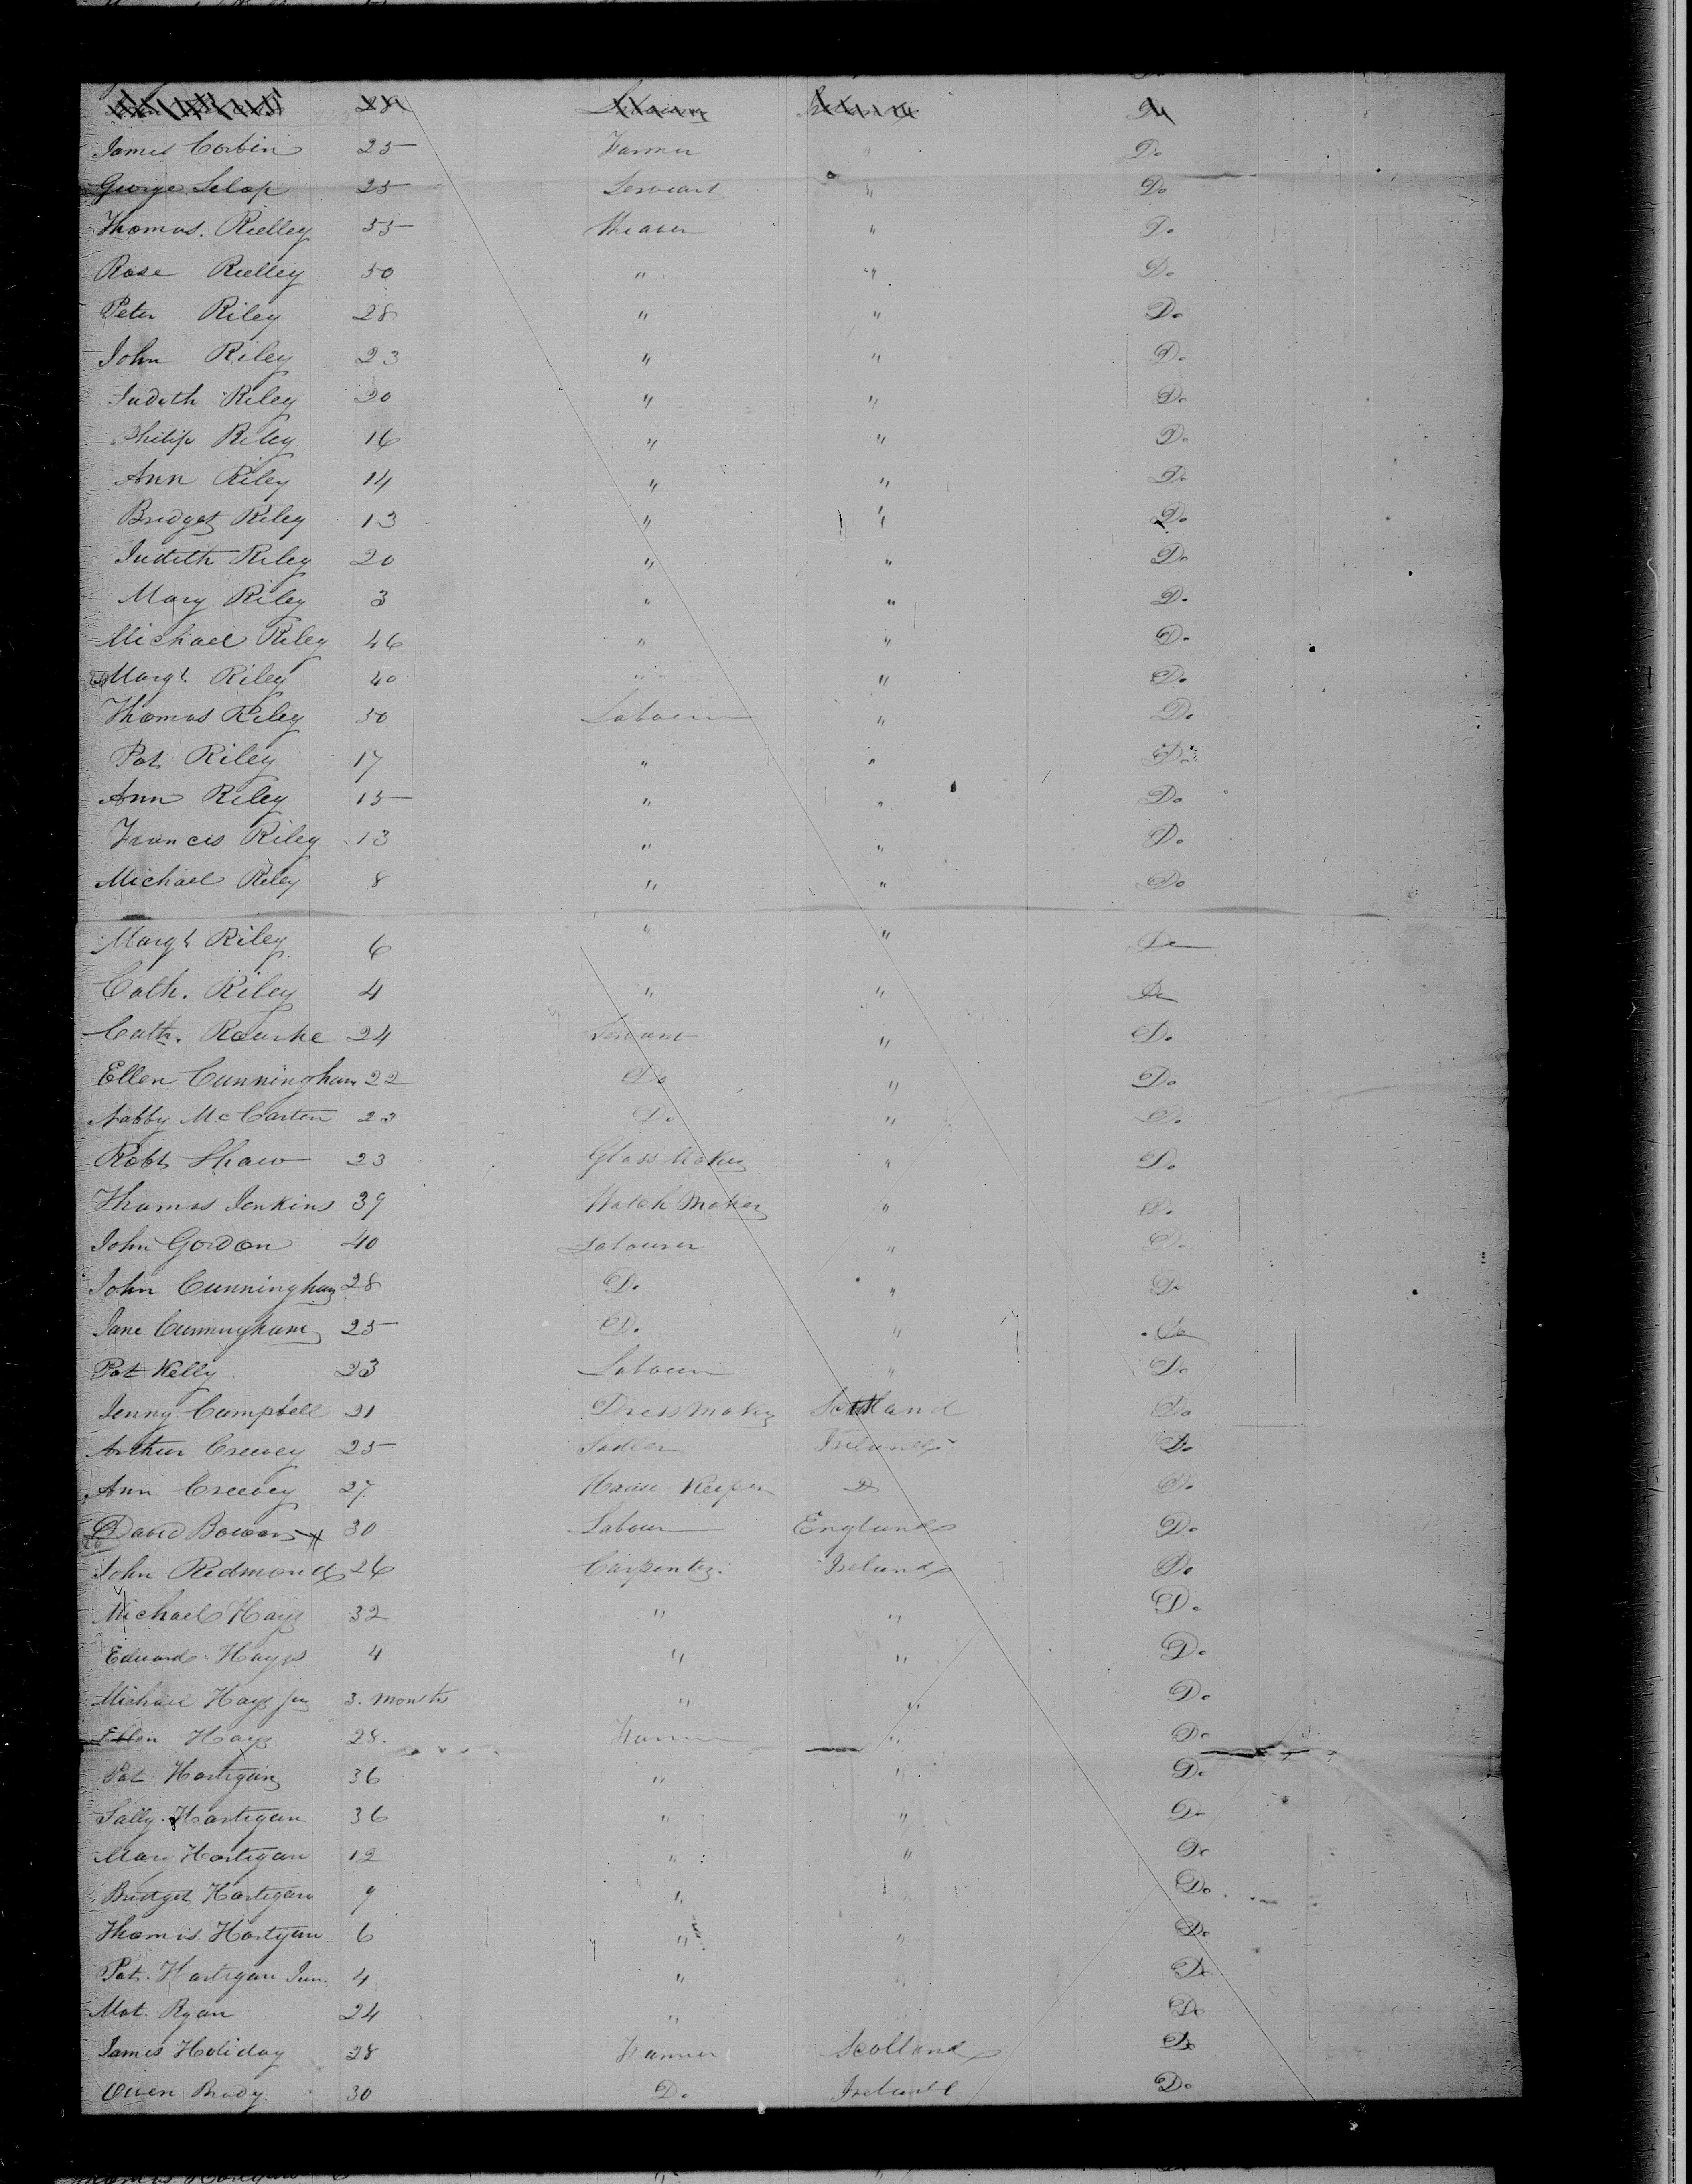 28 Labourer Ireland Do
James Corbin 25 Farmer " Do
George Selop 25 Servant " Do
Thomas. Rielley 55 Weaver " Do
Rose Rielley 50 " " Do
Peter Riley 28 " " Do
John Riley 23 " " Do
Judith Riley 20 " " Do
Philip Riley 16 " " Do
Ann Riley 14 " " Do
Bridget Riley 13 " " Do
Judith Riley 20 " " Do
Mary Riley 3 " " Do
Michael Riley 46 " " Do
Margt. Riley 40 " " Do
Thomas Riley 50 Labourer " Do
Pat Riley 17 " " Do
Ann Riley 15 " " Do
Francis Riley 13 " " Do
Michael Riley 8 " " Do
Margt Riley 6 " " Do
Cath. Riley 4 " " Do
Cath. Rourke 24 Servant " Do
Ellen Cunningham 22 Do " Do
Nabby McCarten 23 Do " Do
Robt Shaw 23 Glass Maker " Do
Thomas Jenkins 39 Watch Maker " Do
John Gordon 40 Labourer " Do
John Cunningham 28 Do " Do
Jane Cunningham 25 Do " Do
Pat Kelly 23 Labourer " Do
Jenny Campbell 21 Dress Maker Scotland Do
Arthur Creevey 25 Sadler Ireland Do
Ann Creevey 27 House Keeper Do Do
David Bowers 30 Labour England Do
John Redmond 26 Carpenter Ireland Do
Michael Hays 32 " " Do
Edward Hays 4 " " Do
Michael Hays Jun 3. Months " " Do
Ellen Hays 28. Farmer " Do
Pat Hartigan 36 " " Do
Sally Hartigan 36 " " Do
Mary Hartigan 12 " " Do
Bridget Hartigan 9 " " Do
Thomas Hartigan 6 " " Do
Pat. Hartigan Jun. 4 " " Do
Mat. Ryan 24 " " Do
James Holiday 28 Farmer Scotland Do
Owen Brady. 30 Do Ireland Do